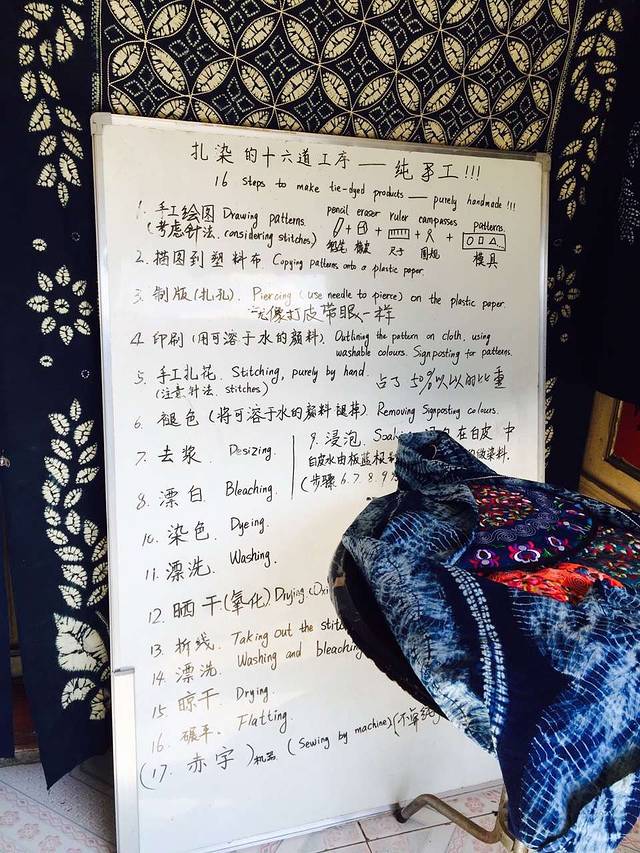 扎染的十六道工序——纯手工!!!
16 steps to make tie-dyed products — purely handmade !!!
1. 手工绘图 Drawing patterns.
(考虑针法. considering stitches)
pencil eraser ruler campasses patterns.
铅笔 橡皮 尺子 圆规 模具
2. 描图到塑料布. Copying patterns onto a plastic paper.
3. 制版(扎孔). Piercing (use needle to pierce) on the plastic paper.
就像打皮带眼一样
4. 印刷 (用可溶于水的颜料). Outlining the pattern on cloth, using
washable colours. Signposting for patterns.
5. 手工扎花. Stitching, purely by hand.
(注意针法. stitches)
占了50%以以的比重
6. 褪色 (将可溶于水的颜料褪掉). Removing Signposting colours.
7. 去浆. Desizing.
8. 漂白. Bleaching.
9. 浸泡. 在白皮 中
白皮水由板蓝根 染料.
(步骤. 6. 7. 8. 9
10. 染色. Dyeing.
11. 漂洗. Washing.
12. 晒干(氧化). Drying.
13. 拆线. Taking out the
14. 漂洗. Washing and
15. 晾干. Drying.
16. 碾平. Flatting.
(17. 赤字) 机器 (Sewing by machine)